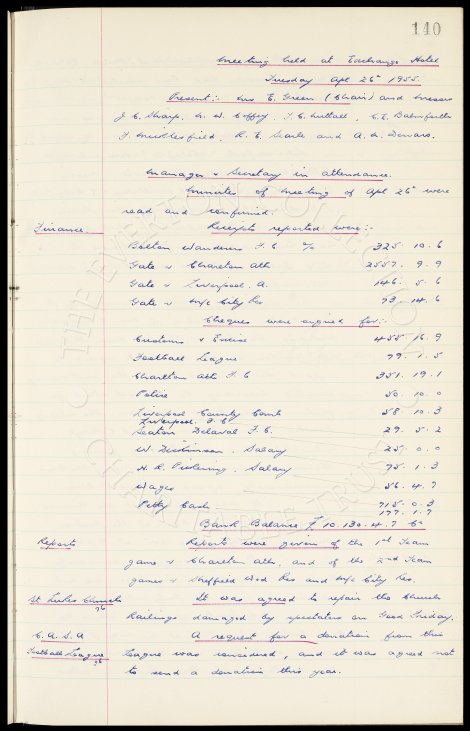 140
Meeting held at Exchange Hotel
Tuesday Apl 26th 1955.
Present:- Mr E. Green (Chair) and Messrs
J. C. Sharp, W. Coffey, T. C. Nuttall, C. E. Balmforth
F. Micklesfield, R. E. Searle and A. Denaro.
Manager & Secretary in attendance.
Minutes of meeting of Apl 26th were
read and confirmed.
Finance.
Receipts reported were:-
Bolton Wanderers F.C % 325. 10. 6
Gate v Charlton Ath 2557. 9. 9
Gate v Liverpool. A. 146. 5. 6
Gate v M/c City Res 73. 14. 6
Cheques were signed for:-
Customs & Excise 455. 16. 9
Football League 79. 1. 5
Charlton Ath F.C 351. 19. 1
Police 50. 10. 0
Liverpool County Comb 58. 10. 3
Liverpool. F.C
Seaton Delaval F.C. 29. 5. 2
W. Dickinson. Salary 25. 0. 0
H. R. Pickering. Salary 75. 1. 3
Wages 56. 4. 7
Petty Cash 715. 0. 3
177. 1. 7
Bank Balance £10.130. 4. 7
Reports
Reports were given of the 1st Team
game v Charlton Ath, and of the 2nd Team
games v Sheffield Wed Res and M/c City Res.
St Lukes Church
It was agreed to repair the Church
Railings damaged by spectators on Good Friday.
C.A.S.A
Football League
A request for a donation from this
League was considered, and it was agreed not
to send a donation this year.
© THE EVERTON COLLECTION
CHARITABLE TRUST